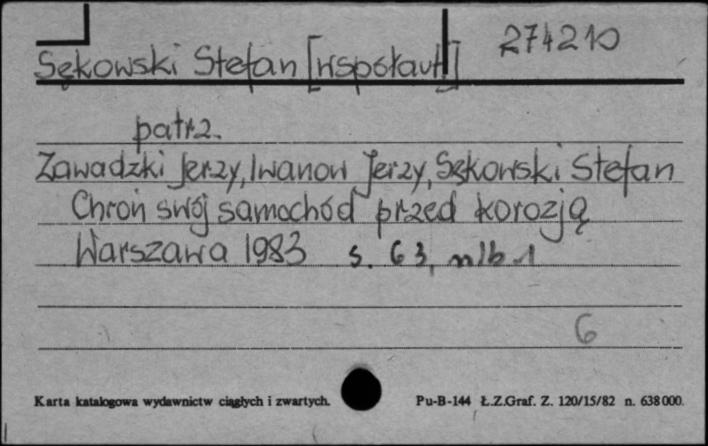 Sękowski Stefan [współaut] 274210
patrz.
Zawadzki Jerzy, Iwanow Jerzy, Sękowski Stefan
Chroń swój samochód przed korozją
Warszawa 1983 s. 63, nlb 1
6
Karta katalogowa wydawnictw ciągłych i zwartych.
Pu-B-144 Ł.Z.Graf. Z. 120/15/82 n. 638000.